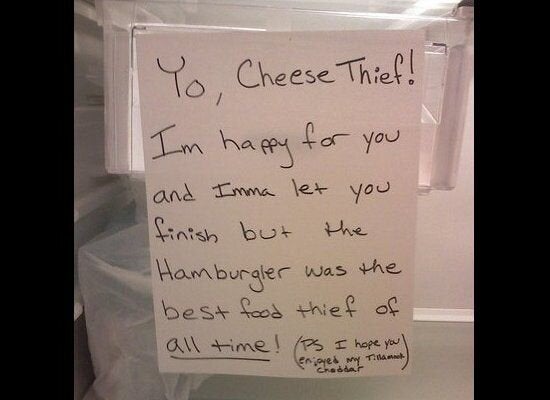 Yo, Cheese Thief!
Im happy for you
and Imma let you
finish but the
Hamburgler was the
best food thief of
all time! (PS I hope you
enjoyed my Tillamook
cheddar)